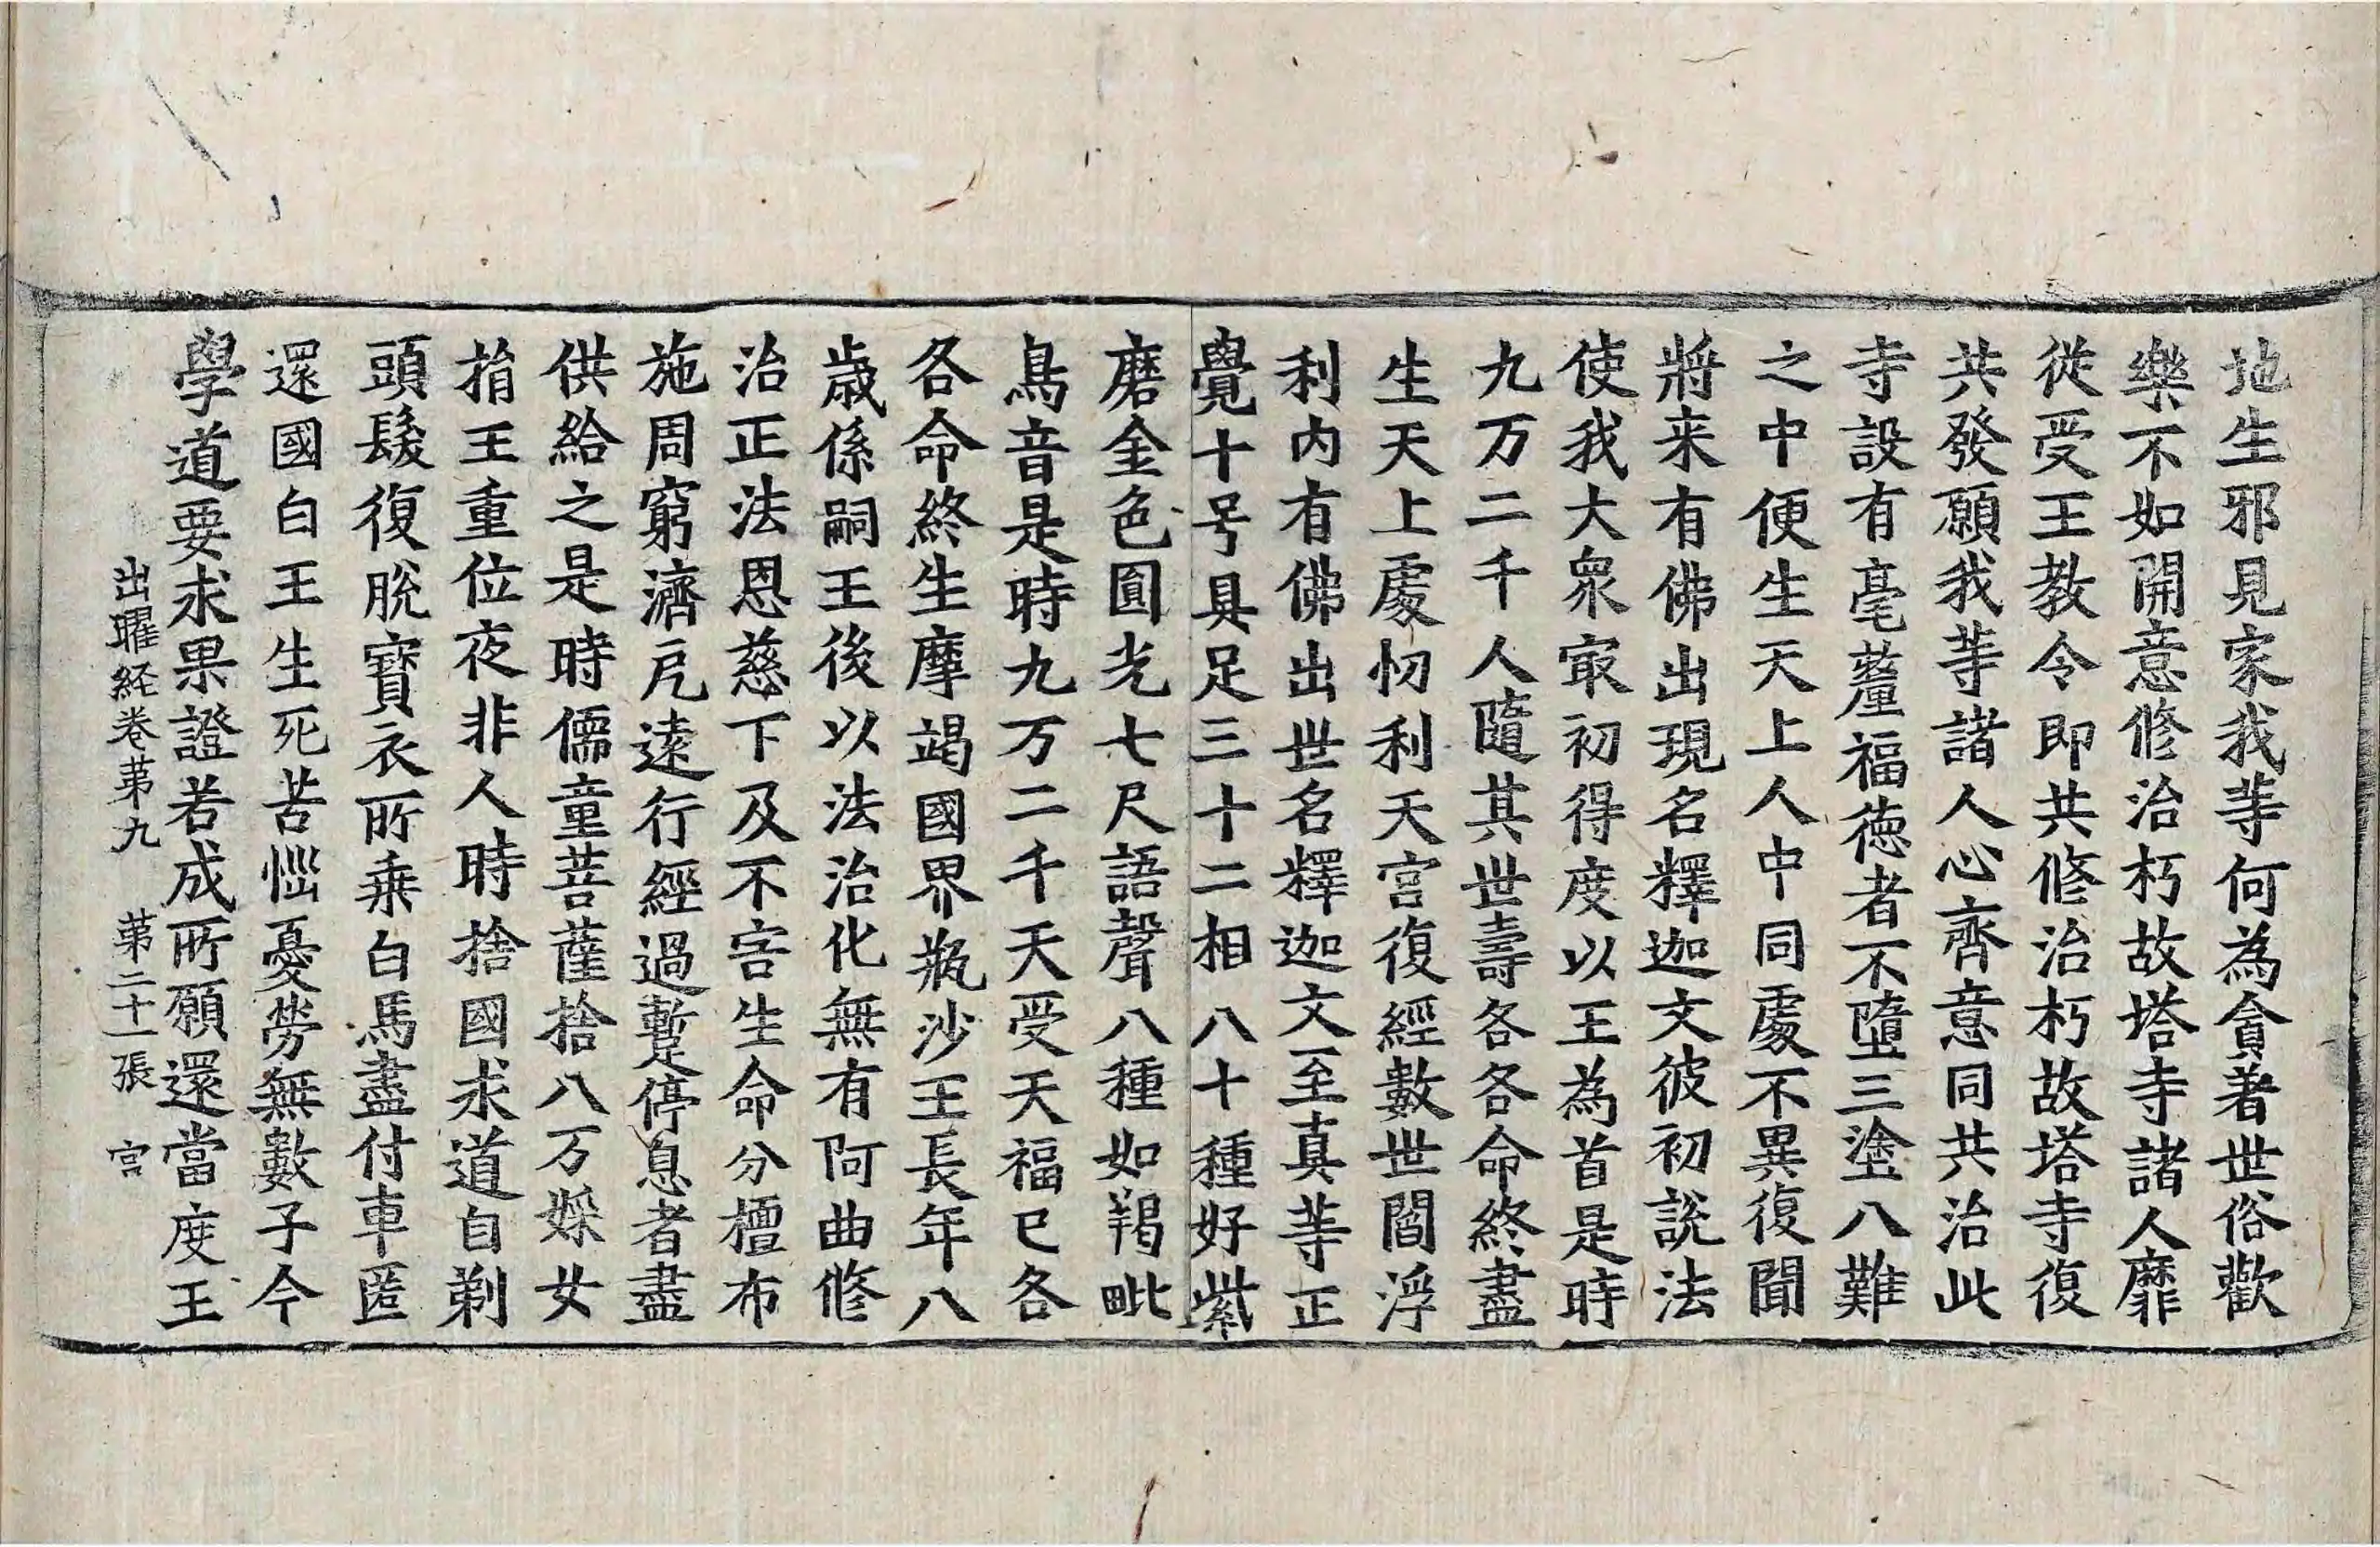 地生邪見家我等何為貪著世俗歡
樂不如開意修治朽故塔寺諸人靡
從受王教令即共修治朽故塔寺復
共發願我等諸人心齊意同共治此
寺設有毫釐福德者不墮三塗八難
之中便生天上人中同處不異復聞
將来有佛出現名釋迦文彼初說法
使我大衆寂初得度以王為首是時
九万二千人隨其世壽各各命終盡
生天上處忉利天宮復經數世閻浮
利內有佛出世名釋迦文至真等正
覺十号具足三十二相八十種好紫
磨金色圓光七尺語聲八種如羯毗
鳥音是時九万二千天受天福已各
各命終生摩竭國界瓶沙王長年八
歲係嗣王後以法治化無有阿曲修
治正法恩慈下及不害生命分檀布
施周窮濟厄遠行經過蹔停息者盡
供給之是時儒童菩薩捨八万婇女
捐王重位夜非人時捨國求道自剃
頭髮復脫寶衣所乗白馬盡付車匿
還國白王生死苦惱憂勞無數子今
學道要求果證若成所願還當度王
出曜経卷第九 第二十一張 宮